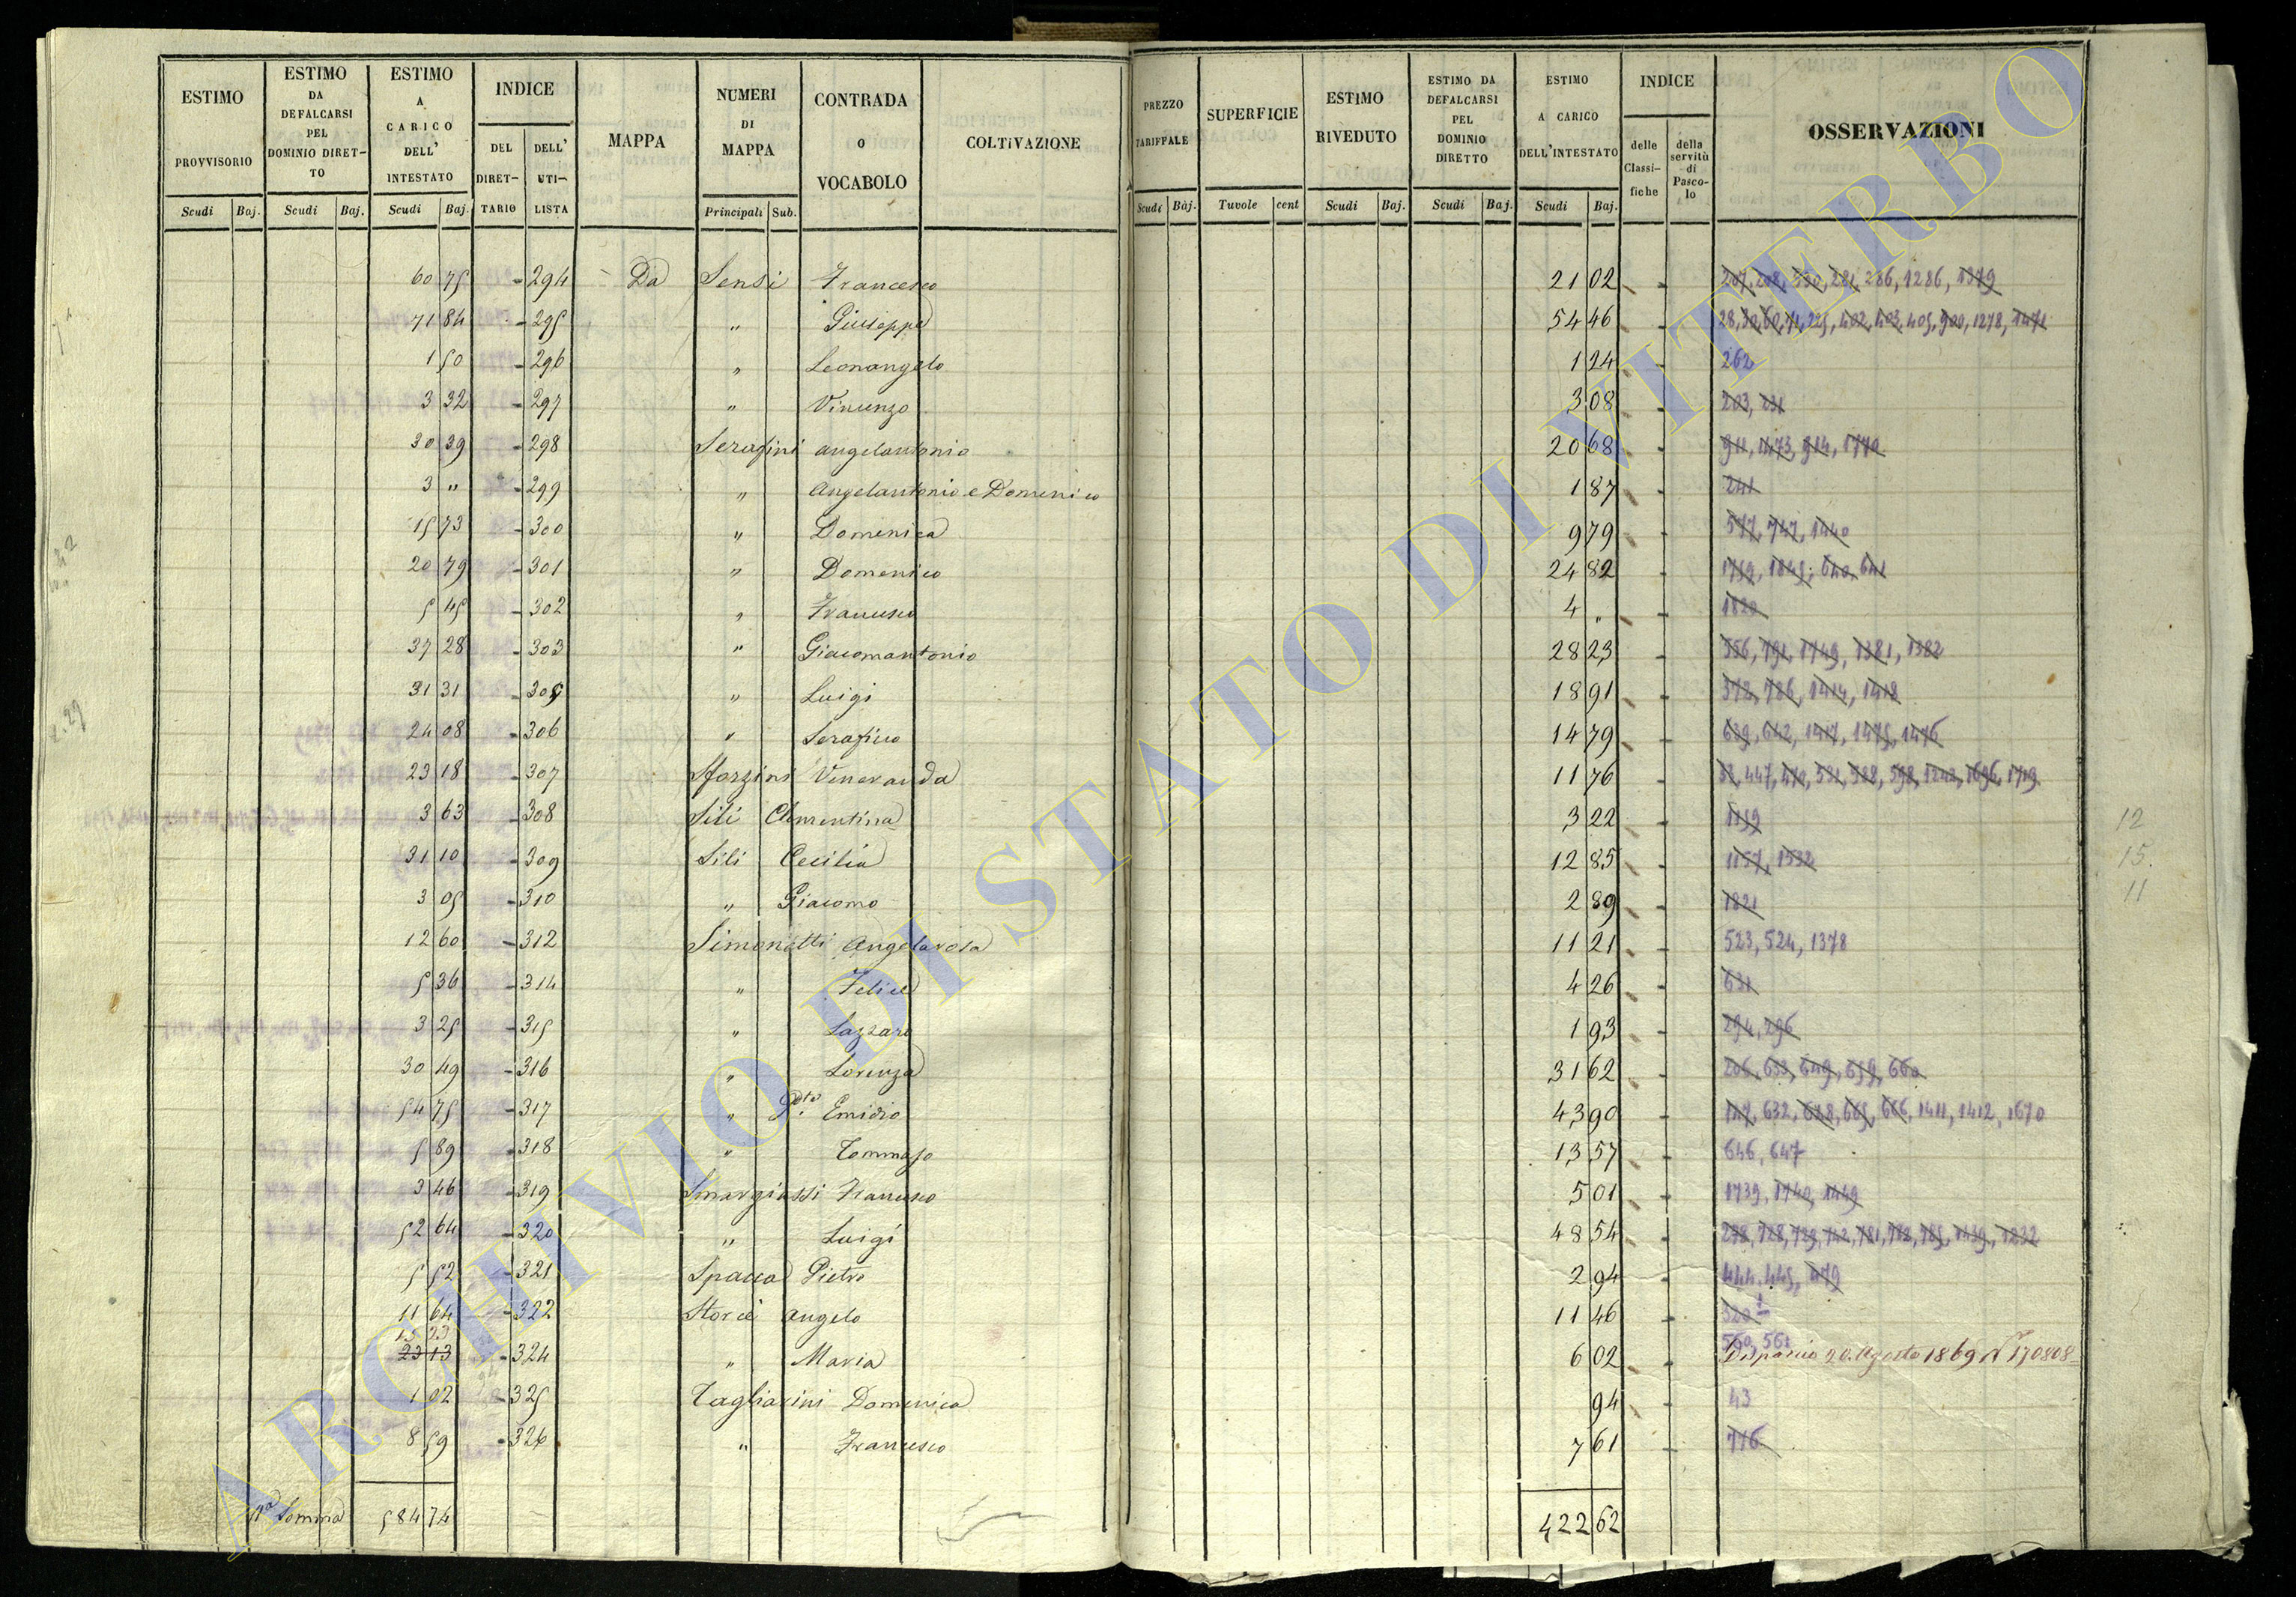 ESTIMO PROVVISORIO | ESTIMO DA DEFALCARSI PEL DOMINIO DIRETTO | ESTIMO A CARICO DELL' INTESTATO | INDICE DEL DIRET-TARIO | DELL' UTI-LISTA | MAPPA | NUMERI DI MAPPA | CONTRADA O VOCABOLO | COLTIVAZIONE | PREZZO TARIFFALE | SUPERFICIE | ESTIMO RIVEDUTO | ESTIMO DA DEFALCARSI PEL DOMINIO DIRETTO | ESTIMO A CARICO DELL'INTESTATO | INDICE delle Classi-fiche | della servitù di Pasco-lo | OSSERVAZIONI
Scudi Baj. Scudi Baj. Scudi Baj. Principali Sub. Scudi Baj. Tavole cent Scudi Baj. Scudi Baj. Scudi Baj.
60 75 - 294 - Da Sensi Francesco 21 02 - 207, 208, 281, 286, 1286, 1379
71 84 - 295 " Giuseppe 54 46 - 28, 30, 60, 71, 225, 402, 403, 405, 900, 1278, 1471
1 50 - 296 " Leonangelo 1 24 - 262
3 32 - 297 " Vincenzo 3 08 - 203, 231
30 39 - 298 Serafini Angelantonio 20 68 - 911, 1473, 914, 1770
3 " - 299 " Angelantonio e Domenico 1 87 - 241
15 73 - 300 " Domenica 9 79 - 577, 747, 1440
20 79 - 301 " Domenico 24 82 - 1759, 1845, 640, 641
5 45 - 302 " Francesco 4 " - 1820
37 28 - 303 " Giacomantonio 28 23 - 556, 791, 1749, 1381, 1382
31 31 - 305 " Luigi 18 91 - 372, 786, 1414, 1418
24 08 - 306 " Serafino 14 79 - 639, 642, 1417, 1475, 1476
23 18 - 307 Sforzini Veneranda 11 76 - 447, 470, 521, 528, 598, 1242, 1696, 1719
3 63 - 308 Sili Clementina 3 22 - 1159
31 10 - 309 Sili Cecilia 12 85 - 1157, 1532
3 05 - 310 " Giacomo 2 89 - 1821
12 60 - 312 Simonetti Angelarosa 11 21 - 523, 524, 1378
5 36 - 314 " Felice 4 26 - 631
3 25 - 315 " Lazzaro 1 93 - 294, 296
30 49 - 316 " Lorenza 31 62 - 206, 633, 649, 659, 660
54 75 - 317 " Emidio 43 90 - 127, 632, 628, 665, 666, 1411, 1412, 1670
5 89 - 318 " Tommaso 13 57 - 646, 647
3 46 - 319 Smargiassi Francesco 5 01 - 1739, 1740, 1449
52 64 - 320 " Luigi 48 54 - 278, 728, 729, 742, 781, 782, 785, 1439, 1232
5 52 - 321 Spacca Pietro 2 94 - 444, 445, 479
11 64 - 322 Storci Angelo 11 46 - 320
15 23
23 13 - 324 " Maria 6 02 - 560, 561
Dispaccio 20 Agosto 1869 N 170808
1 02 - 325 Tagliarini Domenica 94 - 43
8 59 - 326 " Francesco 7 61 - 776
11a Somma 584 74 422 62
12
15.
11
ARCHIVIO DI STATO DI VITERBO